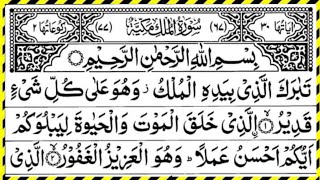 اٰیَاتُهَا ٣٠ (٦٧) سُوْرَةُ الْمُلْكِ مَكِّیَّةٌ (٧٧) رُكُوْعَاتُهَا ٢
بِسْمِ اللّٰهِ الرَّحْمٰنِ الرَّحِیْمِ
تَبٰرَكَ الَّذِیْ بِیَدِهِ الْمُلْكُ ز وَهُوَ عَلٰی كُلِّ شَیْءٍ
قَدِیْرُ ۙ﴿١﴾ اۨلَّذِیْ خَلَقَ الْمَوْتَ وَالْحَیٰوةَ لِیَبْلُوَكُمْ
اَیُّكُمْ اَحْسَنُ عَمَلًا ؕ وَهُوَ الْعَزِیْزُ الْغَفُوْرُ ۙ﴿٢﴾ الَّذِیْ